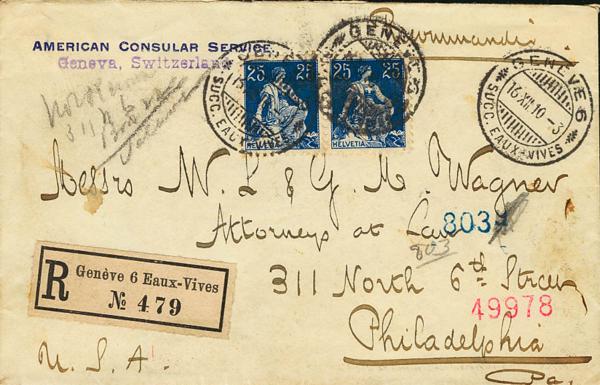 AMERICAN CONSULAR SERVICE.
Geneva, Switzerland
Recommandée
25 25
HELVETIA
25 25
HELVETIA
GENÈVE 6
16.XII.10.-3
SUCC. EAUX-VIVES
SUCC. EAUX-VIVES
GENÈVE
311 N 6
Messrs W. L & G. M. Wagner
Attorneys at Law
803
803
311 North 6th Street
49978
Philadelphia
Pa.
R Genève 6 Eaux-Vives
№ 479
U. S. A.